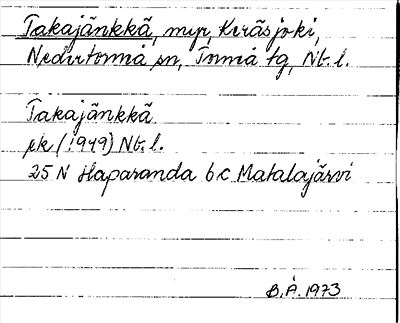 Takajänkkä, myr, Keräsjoki,
Nedertorneå sn, Torneå tg, Nb. l.
Takajänkkä
ek (1949) Nb. l.
25 N Haparanda 6 c Matalajärvi
B. Å. 1973